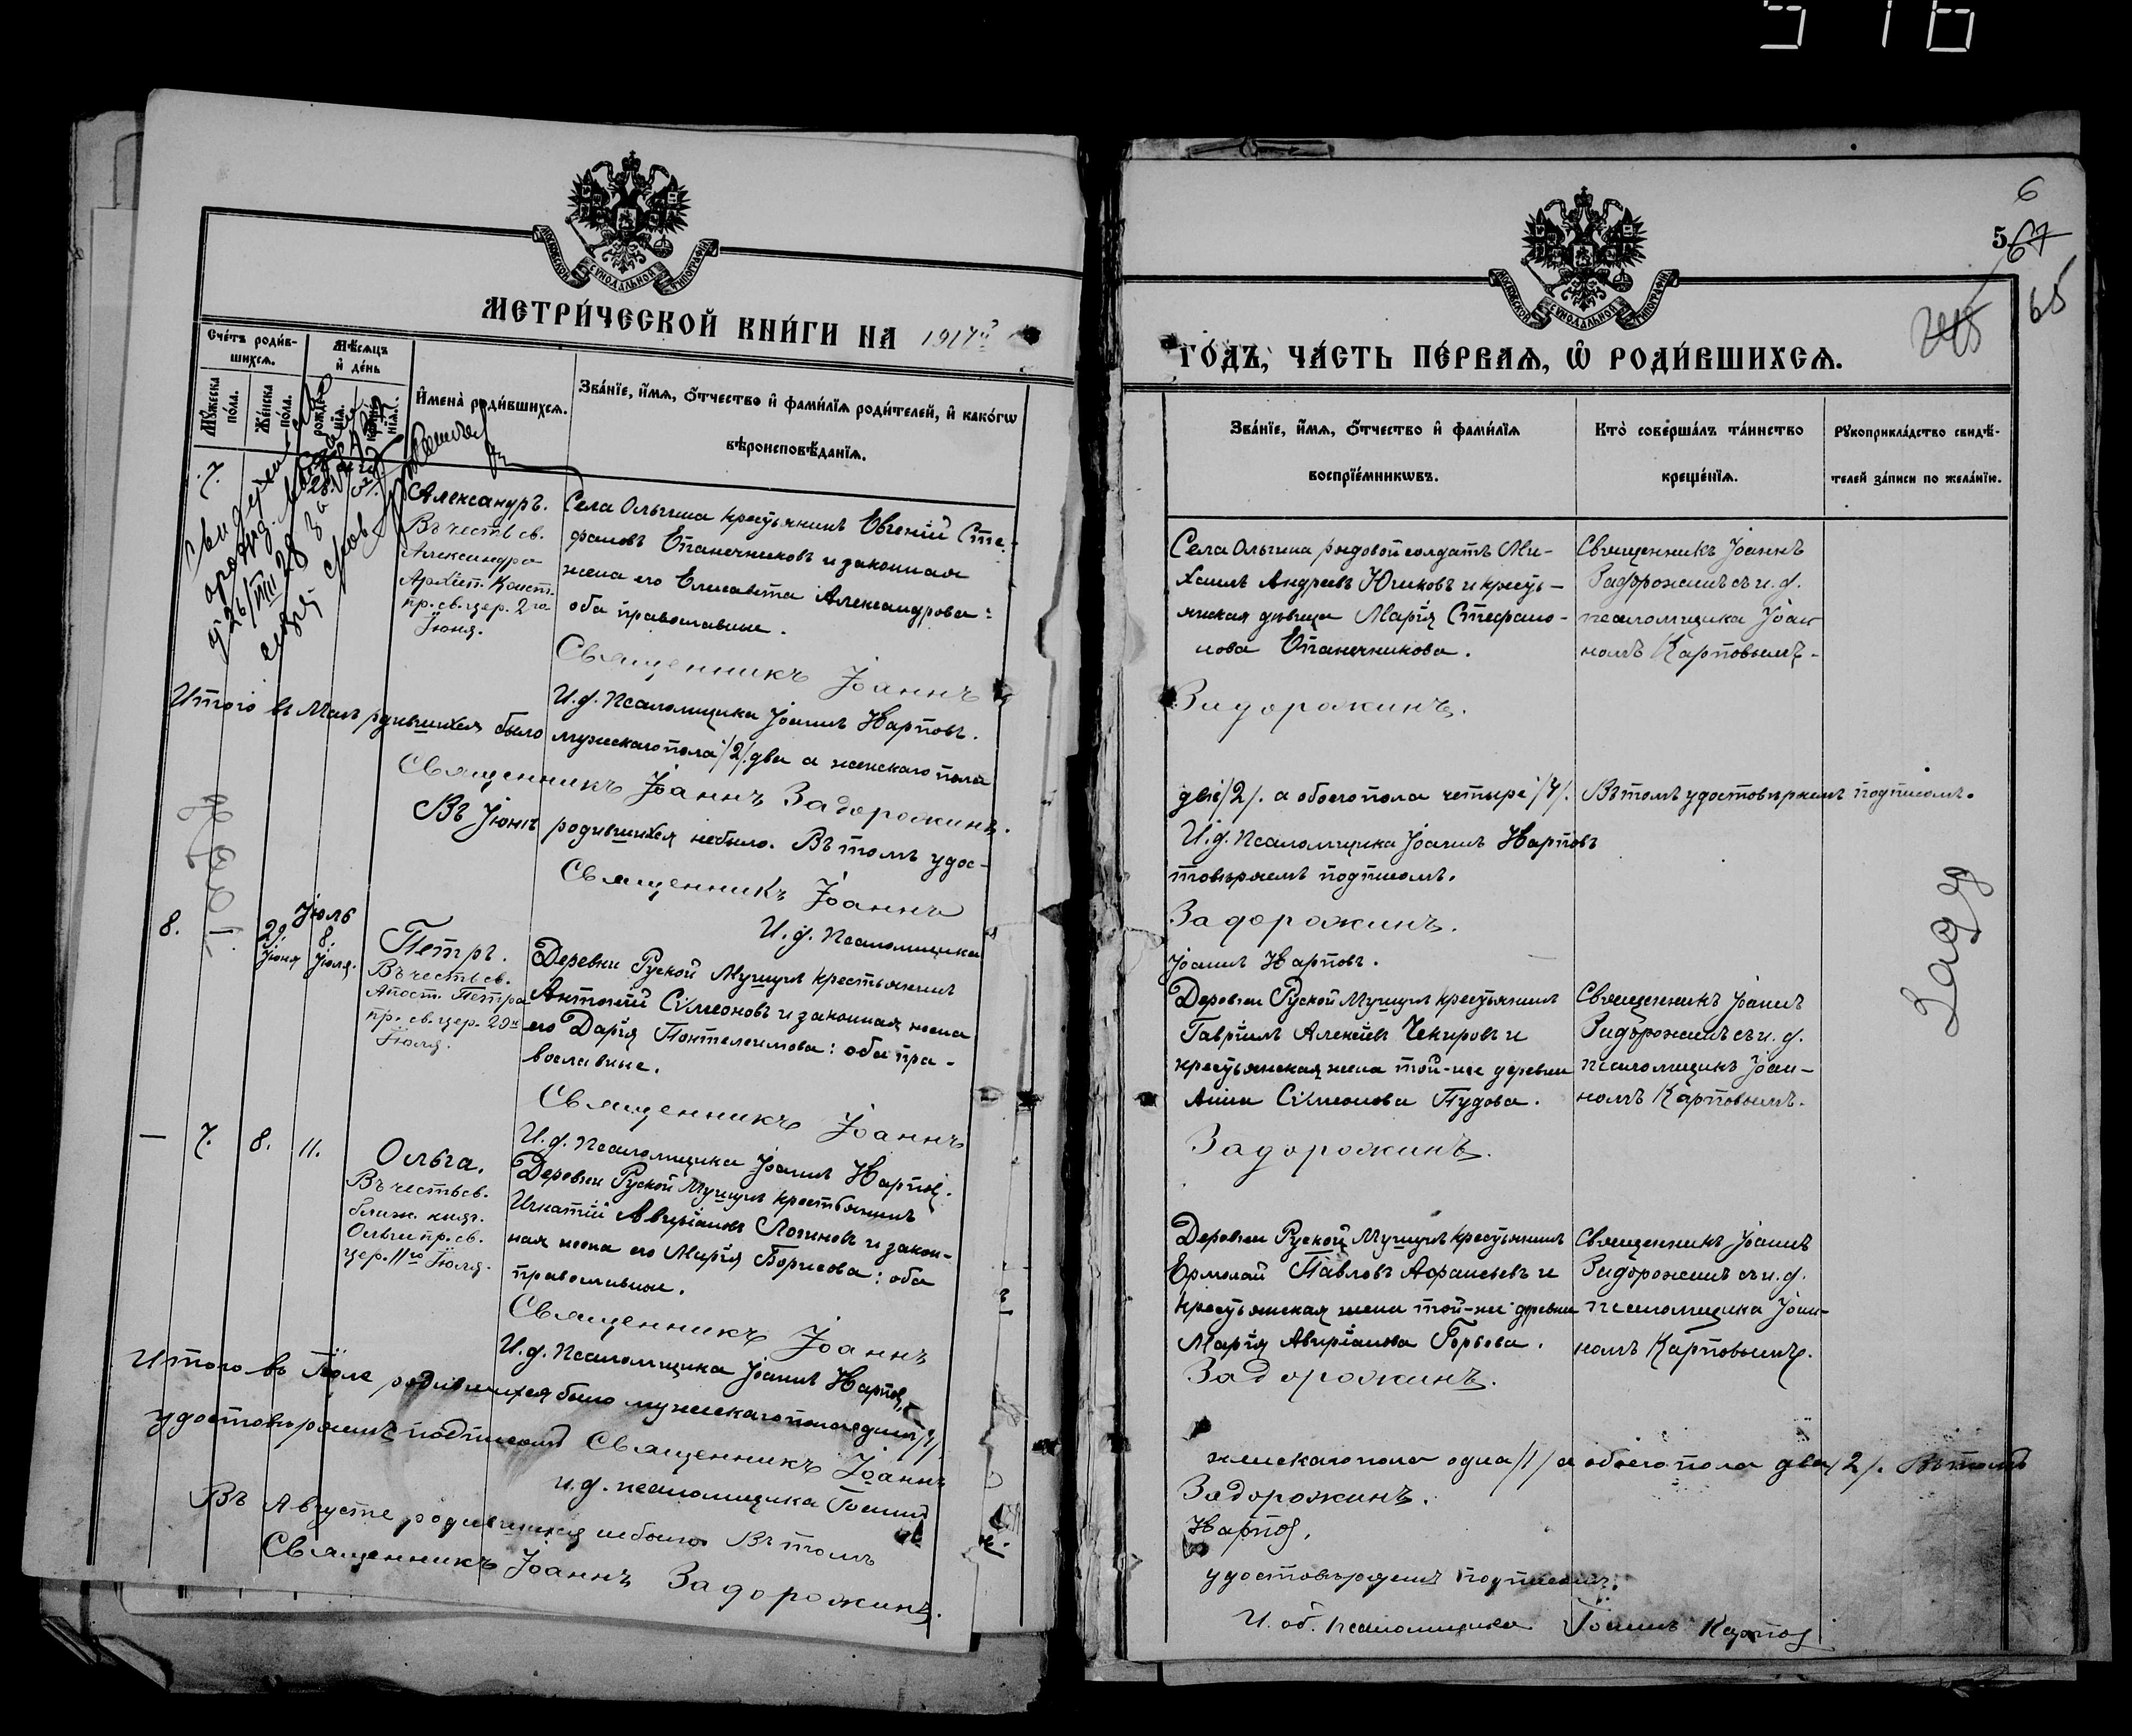 МОСКОВСКОЙ СѴНОДАЛЬНОЙ ТИПОГРАФІИ
МЕТРИ́ЧЕСКОЙ КНИ́ГИ НА 1917й
Сче́тъ роди́в-
шихся.
Мѣ́сяцъ
и́ де́нь
Мꙋ́жеска
по́ла.
Же́нска
по́ла.
рожде́-
нія.
Имена̀ роди́вшихся.
Зва́ніе, и́мя, ѻ́тчество и҆ фами́лія роди́телей, и҆ како́гѡ
вѣроисповѣ́данія.
7.
Александръ.
Въ честь св.
Александра
Архіеп. Конст.
пр. св. цер. 2го
Іюня.
Села Ольгина крестьянинъ Евгеній Сте-
фановъ Епанечниковъ и законная
жена его Елисавета Александрова:
оба православные.
Священникъ Іоаннъ
И.д. Псаломщика Іоаннъ Карповъ.
Итого въ Маѣ родившихся было мужескаго пола /2/. два а женскаго пола
Священникъ Іоаннъ Задорожинъ.
Въ Іюнѣ родившихся небыло. Въ томъ удос-
Священникъ Іоаннъ
И.д. Псаломщика
Іюль
8.
29
Іюня
8.
Іюля.
Петръ.
Въ честь св.
Апост. Петра
пр. св. цер. 29го
Іюня.
Деревни Руской Мушуг крестьянинъ
Антоній Сѵмеоновъ и законная жена
его Дарія Понтелеимова: оба пра-
вославные.
Священникъ Іоаннъ
И.д. Псаломщика Іоаннъ Карпов.
—
7.
8.
11.
Ольга.
Въ честь св.
Ольги пр. св.
цер. 11го Іюля.
Деревни Руской Мушуг крестьянинъ
Игнатій Авиріановъ Логиновъ и закон-
ная жена его Марія Борисова: оба
православные.
Священникъ Іоаннъ
И.д. Псаломщика Іоаннъ Карпов.
Итого въ Іюле родившихся было мужескаго пола единъ /1/
удостовѣряемъ подписомъ Священникъ Іоаннъ
и.д. псаломщика Іоаннъ
Въ Августе родившихся небыло Въ томъ
Священникъ Іоаннъ Задорожинъ.
6
5
67
65
МОСКОВСКОЙ СѴНОДАЛЬНОЙ ТИПОГРАФІИ
ГО́ДЪ, ЧА́СТЬ ПЕ́РВАЯ, Ѡ҆ РОДИ́ВШИХСЯ.
Зва́ніе, и́мя, ѻ́тчество и҆ фами́лія
воспріе́мникѡвъ.
Кто̀ соверша́лъ та́инство
креще́нія.
Рꙋкоприкла́дство свидѣ́-
телей за́писи по жела́нію.
Села Ольгина рядовой солдатъ Ми-
хаилъ Андреевъ Юшковъ и кресть-
янская дѣвица Марія Стефано-
нова Епанечникова.
Священникъ Іоаннъ
Задорожинъ съ и.д.
псаломщика Іоан
номъ Карповымъ.
Задорожинъ.
две /2/. а обоего пола четыре /4/. Въ томъ удостовѣряемъ подписомъ.
И.д. Псаломщика Іоаннъ Карповъ
товѣряемъ подписомъ.
Задорожинъ.
Іоаннъ Карповъ.
Деревни Руской Мушуг крестьянинъ
Гавріилъ Алексіевъ Чекировъ и
крестьянская жена той-же деревни
Анна Сѵмеонова Пудова.
Священникъ Іоаннъ
Задорожинъ съ и.д.
псаломщикъ Іоан-
номъ Карповымъ.
Задорожинъ.
Деревни Руской Мушуг крестьянинъ
Ермолай Павловъ Афанасьевъ и
крестьянская жена той-же деревни
Марія Авиріанова Горбова.
Священникъ Іоаннъ
Задорожинъ съ и.д.
псаломщика Іоан-
номъ Карповымъ.
Задорожинъ.
женскаго пола одна /1/ а обоего пола два /2/. Въ томъ
Задорожинъ.
Карпов.
удостовѣряемъ подписомъ.
И. об. псаломщика Іоаннъ Карпов